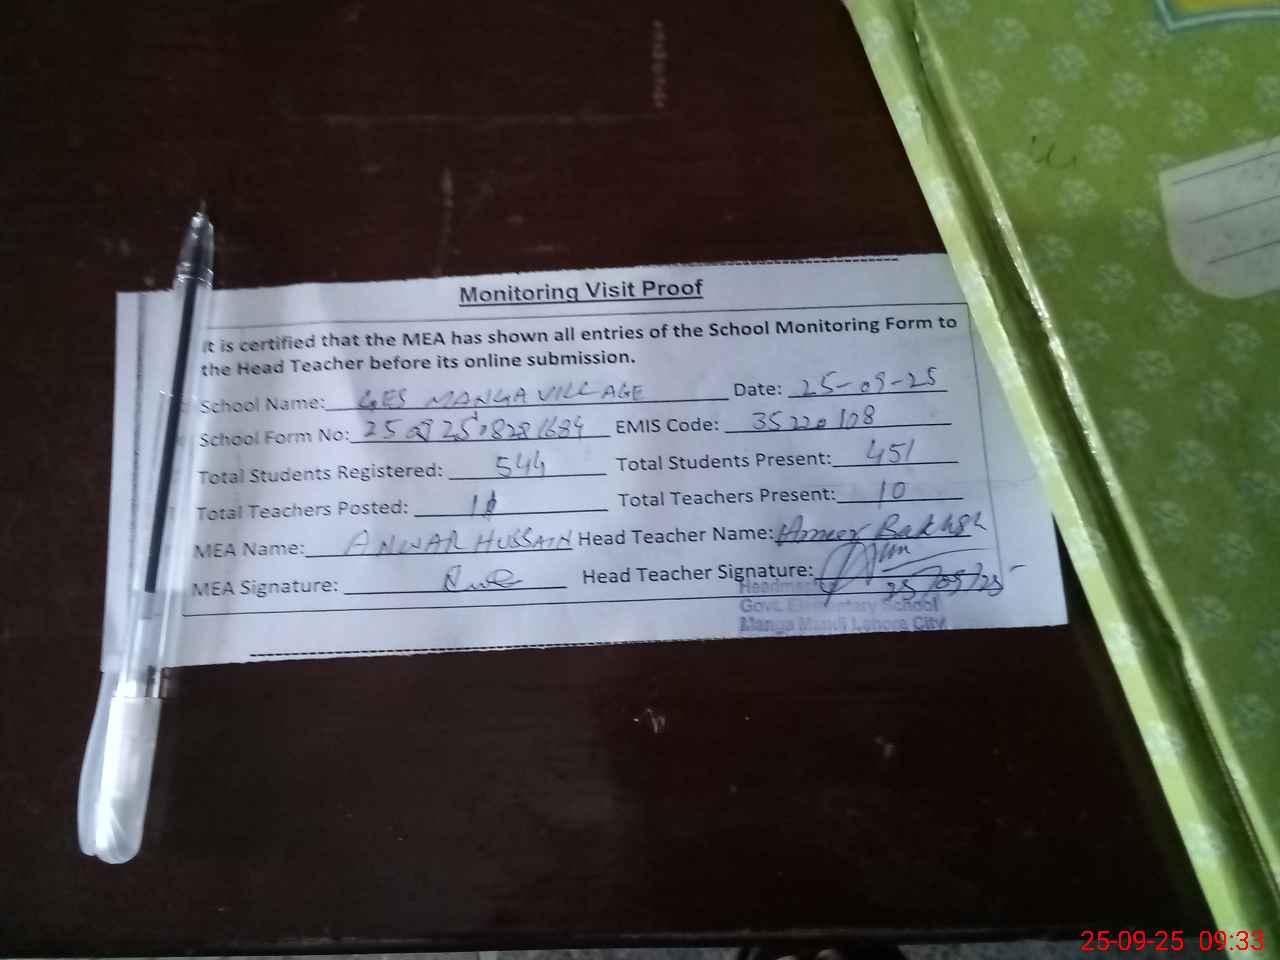 Monitoring Visit Proof
It is certified that the MEA has shown all entries of the School Monitoring Form to
the Head Teacher before its online submission.
School Name: GES MANGA VILLAGE Date: 25-09-25
School Form No: EMIS Code: 35220108
Total Students Registered: 544 Total Students Present: 451
Total Teachers Posted: Total Teachers Present: 10
MEA Name: ANWAR HUSSAIN Head Teacher Name: Ameer Bakhsh
MEA Signature: Head Teacher Signature:
25/09/25
Govt. Elementary School
Manga Mandi Lahore City
25-09-25 09:33